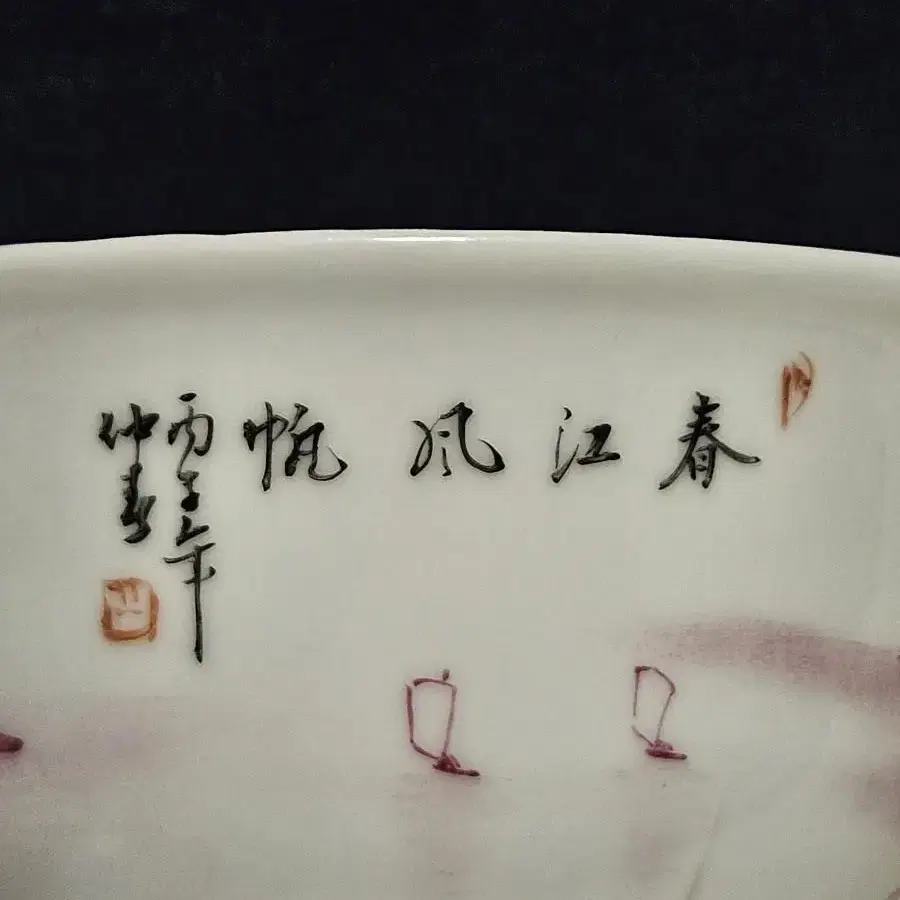 春江风帆
丙子年
仲春